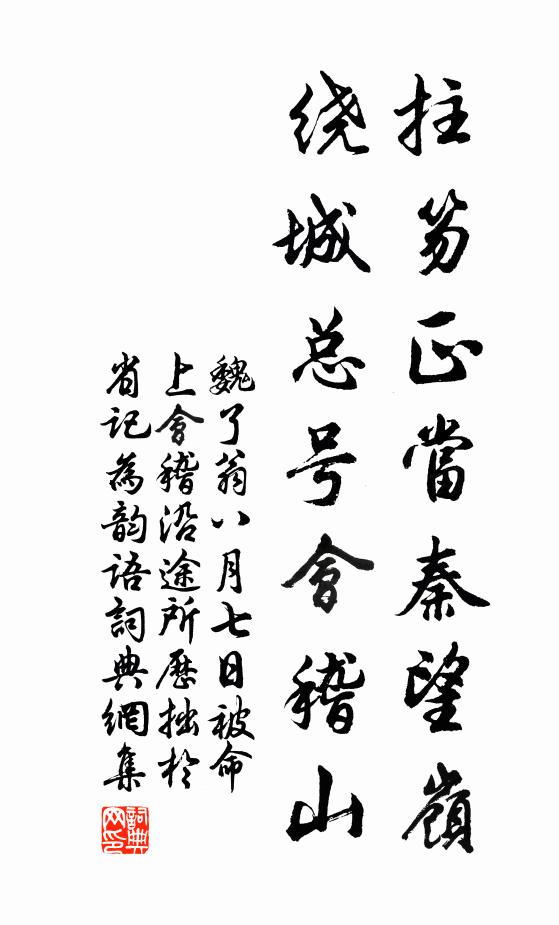 拄笏正當秦望嶺
绕城总号會稽山
魏了翁八月七日被命
上會稽沿途所歷拙於
省记為韵语詞典網集
詞典网印